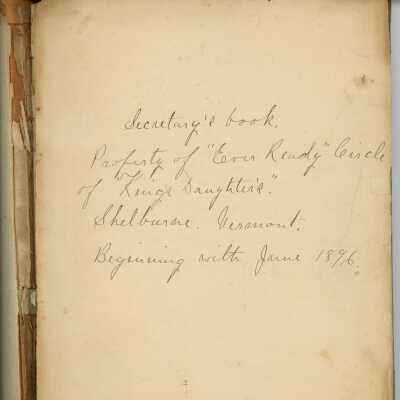 Secretary's book.
Property of "Ever Ready" Circle
of "Kings Daughters".
Shelburne. Vermont.
Beginning with June 1896.